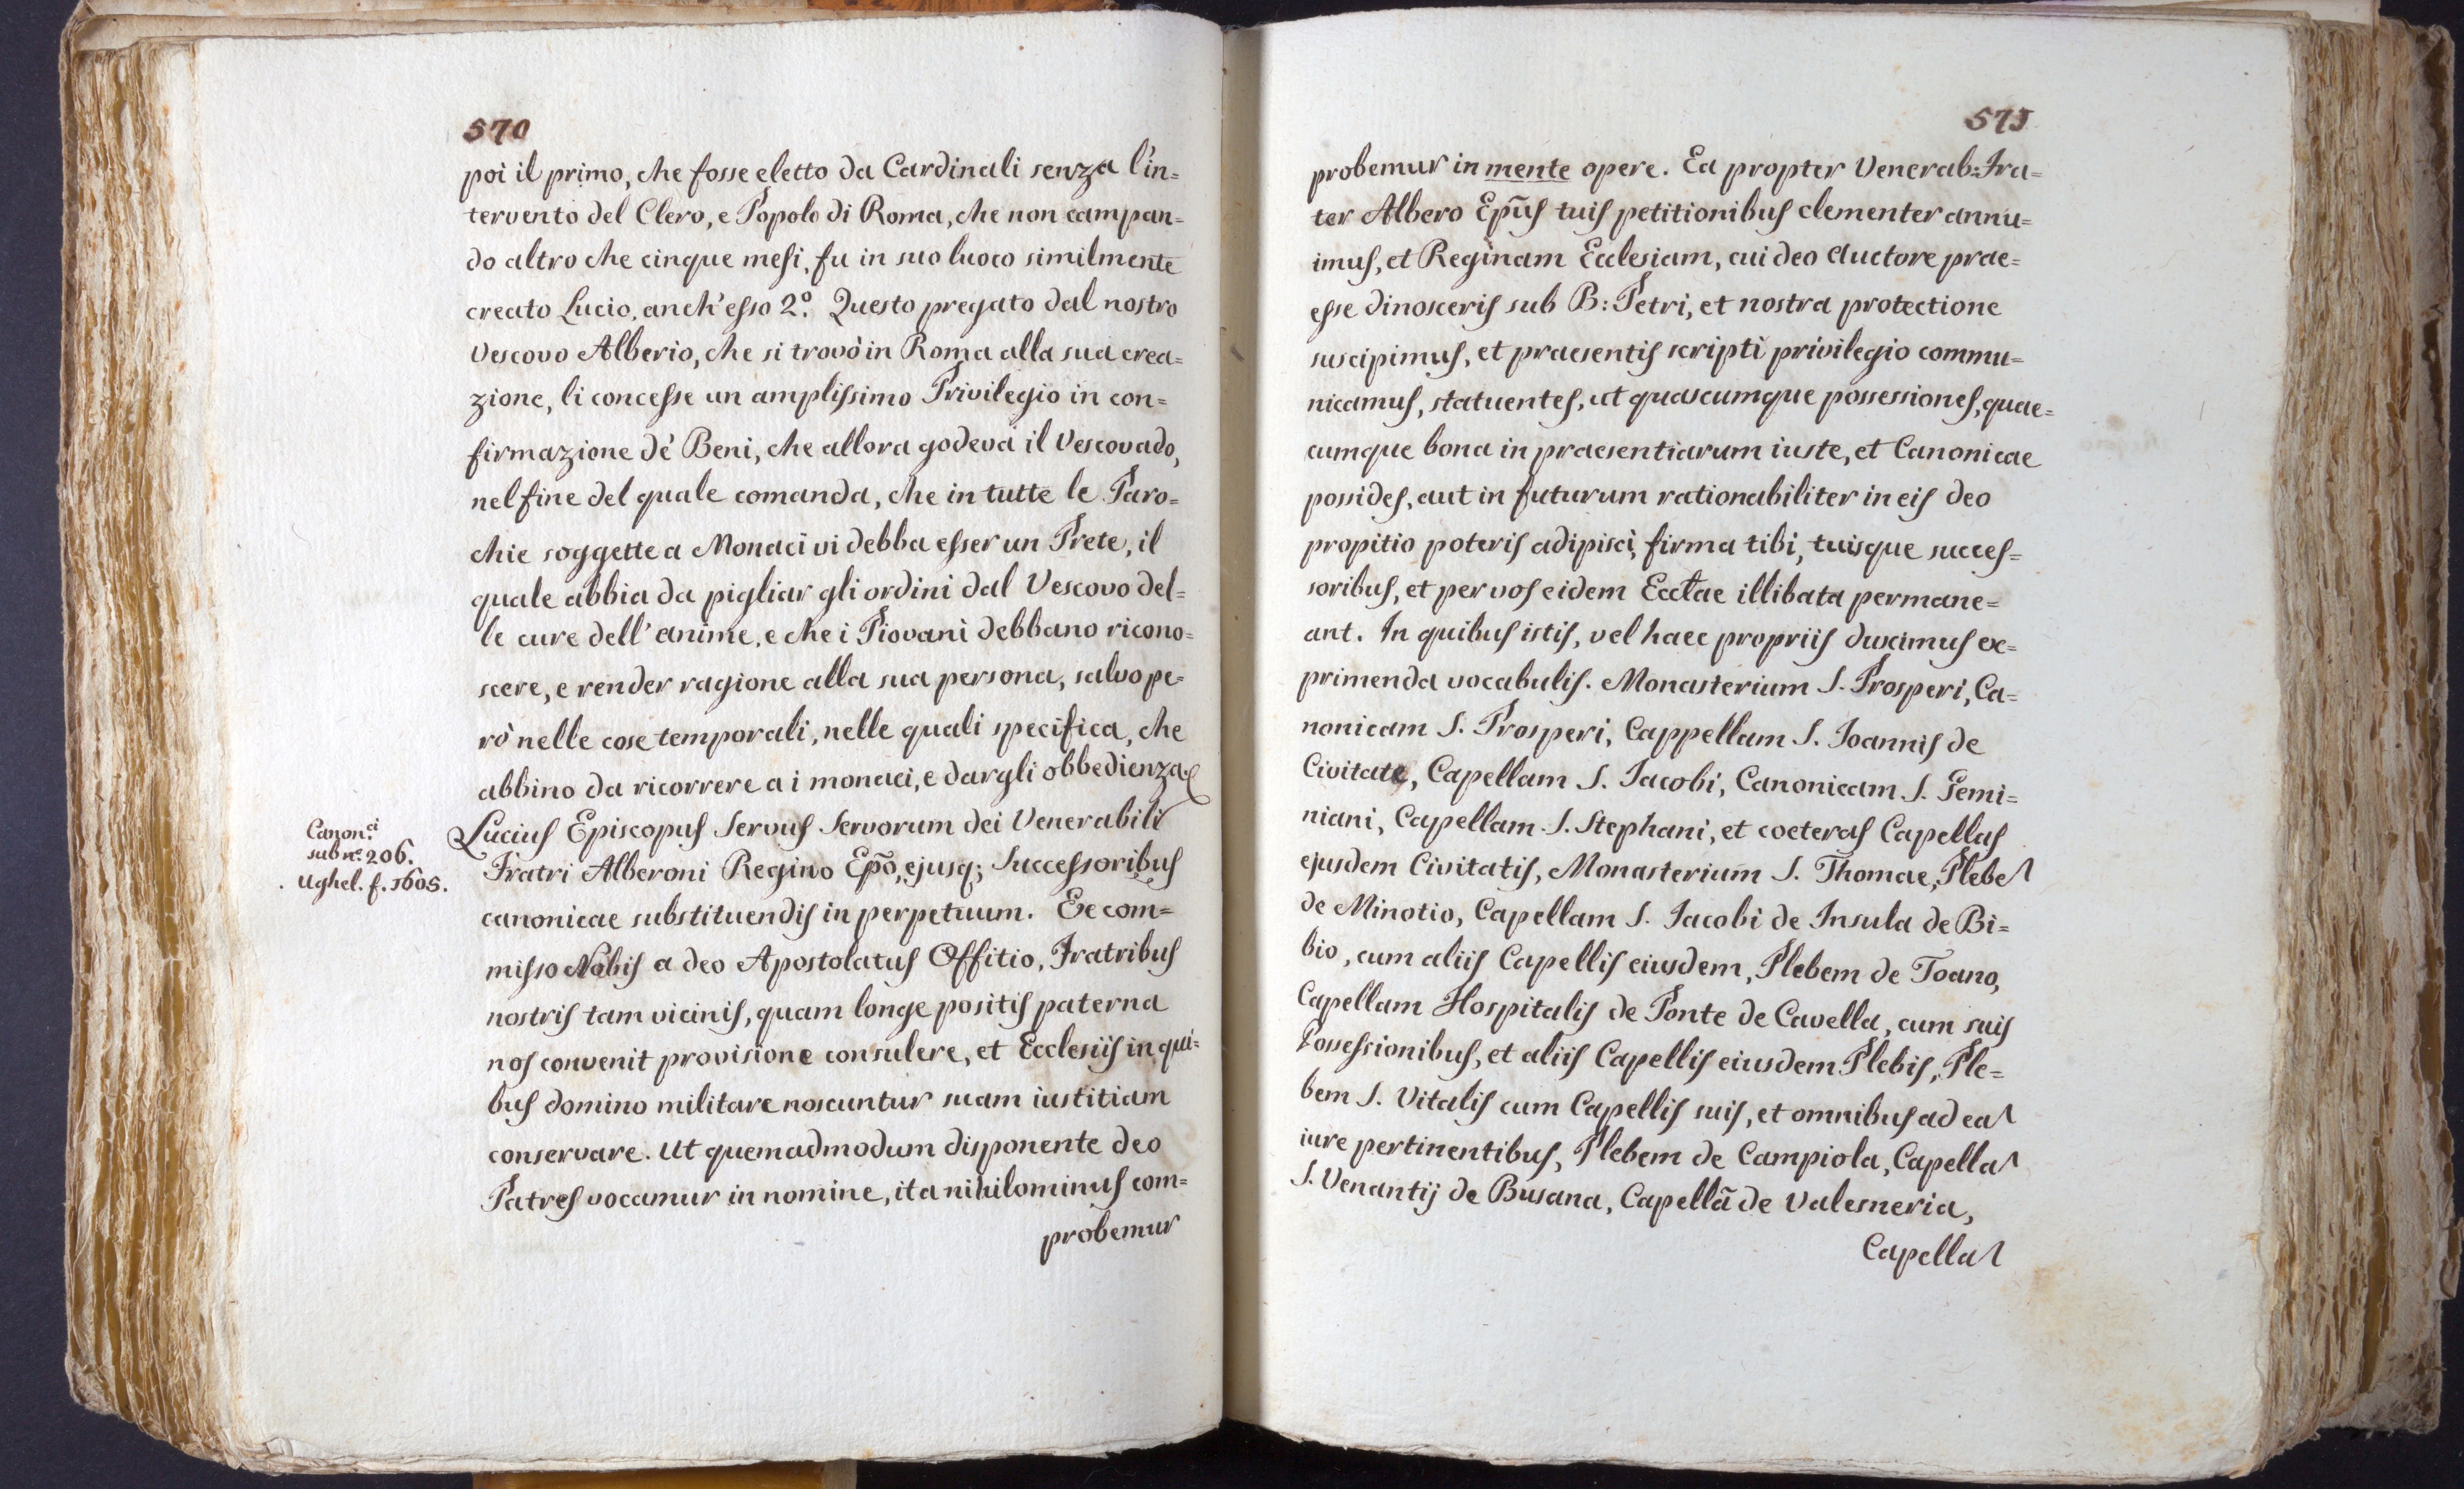 570
poi il primo, che fosse eletto da Cardinali senza l'in=
tervento del Clero, e Popolo di Roma, che non campan=
do altro che cinque mesi, fu in suo luoco similmente
creato Lucio, anch'esso 2.º Questo pregato dal nostro
Vescovo Alberio, che si trovò in Roma alla sua crea=
zione, li concesse un amplissimo Privilegio in con=
firmazione dè Beni, che allora godeva il Vescovado,
nel fine del quale comanda, che in tutte le Paro=
chie soggette a Monaci vi debba esser un Prete, il
quale abbia da pigliar gli ordini dal Vescovo del=
le cure dell'anime, e che i Piovani debbano ricono=
scere, e render ragione alla sua persona, salvo pe=
rò nelle cose temporali, nelle quali specifica, che
abbino da ricorrere a i monaci, e dargli obbedienza.
Canon.ci
sub n.º 206.
Ughel. f. 1605.
Lucius Episcopus Servus Servorum dei Venerabili
Fratri Alberoni Regino Epō, ejusq; Successoribus
canonicae substituendis in perpetuum. Ee com=
misso Nobis a deo Apostolatus Offitio, Fratribus
nostris tam vicinis, quam longe positis paterna
nos convenit provisione consulere, et Ecclesiis in qui=
bus domino militare noscuntur suam iustitiam
conservare. Ut quemadmodum disponente deo
Patres vocamur in nomine, ita nihilominus com=
probemur
571
probemur in mente opere. Ea propter Venerab: Fra=
ter Albero Epūs tuis petitionibus clementer annu=
imus, et Reginam Ecclesiam, cui deo Auctore prae=
esse dinosceris sub B: Petri, et nostra protectione
suscipimus, et praesentis scripti privilegio commu=
nicamus, statuentes, ut quascumque possessiones, quae=
cumque bona in praesentiarum iuste, et Canonicae
possides, aut in futurum rationabiliter in eis deo
propitio poteris adipisci, firma tibi, tuisque succes=
soribus, et per vos eidem Ecclae illibata permane=
ant. In quibus istis, vel haec propriis duximus ex=
primenda vocabulis. Monasterium S. Prosperi, Ca=
nonicam S. Prosperi, Cappellam S. Ioannis de
Civitate, Capellam S. Iacobi, Canonicam S. Gemi=
niani, Capellam S. Stephani, et coeteras Capellas
ejusdem Civitatis, Monasterium S. Thomae, Plebem
de Minotio, Capellam S. Iacobi de Insula de Bi=
bio, cum aliis Capellis eiusdem, Plebem de Toano,
Capellam Hospitalis de Ponte de Cavella, cum suis
Possessionibus, et aliis Capellis eiusdem Plebis, Ple=
bem S. Vitalis cum Capellis suis, et omnibus ad eam
iure pertinentibus, Plebem de Campiola, Capellam
S. Venantij de Busana, Capellā de Valesneria,
Capellam